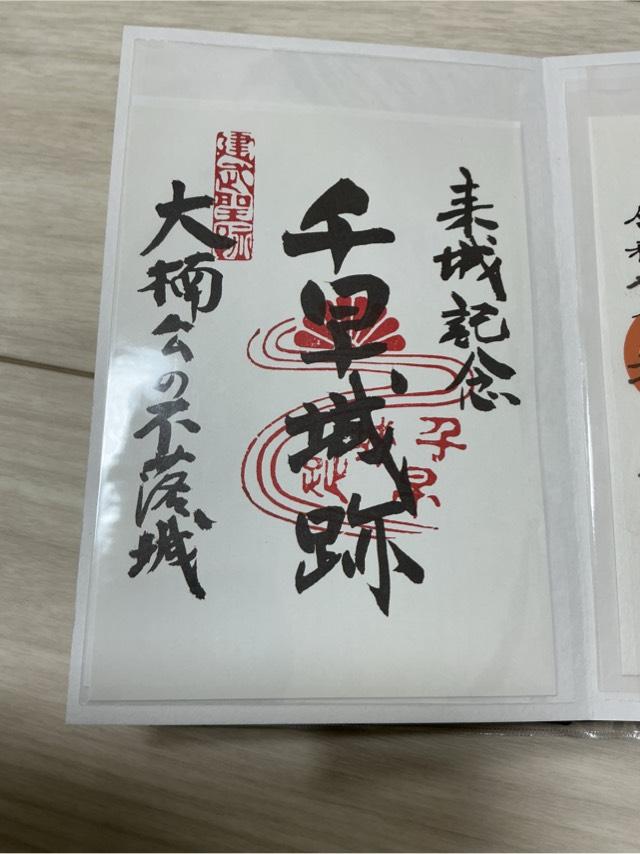 来城記念
千早城跡
建武聖跡
大楠公の不落城